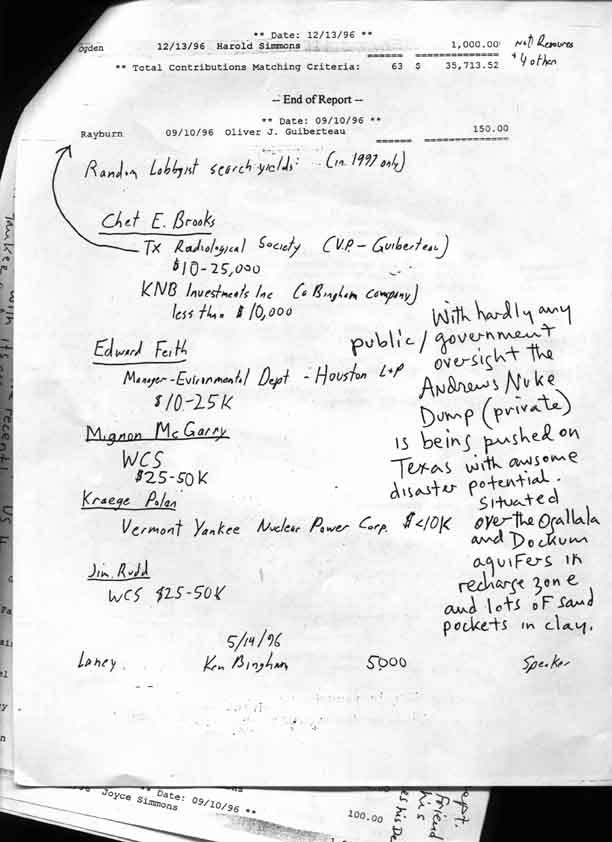 ** Date: 12/13/96 **
Ogden 12/13/96 Harold Simmons 1,000.00 Natl Resources
====== ============
** Total Contributions Matching Criteria: 63 $ 35,713.52 + 4 other
-- End of Report --
** Date: 09/10/96 **
Rayburn 09/10/96 Oliver J. Guiberteau 150.00
====== ============
Random Lobbyist search yields: (in 1997 only)
Chet E. Brooks
TX Radiological Society (V.P. - Guiberteau)
$10-25,000
KNB Investments Inc (a Bingham company)
less than $10,000
Edward Feith
Manager-Evironmental Dept - Houston L+P
$10-25K
Mignon McGarry
WCS
$25-50K
Kraege Polan
Vermont Yankee Nuclear Power Corp. $<10K
Jim Rudd
WCS $25-50K
With hardly any
public/government
oversight the
Andrews Nuke
Dump (private)
is being pushed on
Texas with awsome
disaster potential.
Situated
over the Ogallala
and Dockum
aquifers in
recharge zone
and lots of sand
pockets in clay.
5/14/96
Laney Ken Bingham 5000 Speaker
Joyce Simmons
** Date: 09/10/96 **
100.00
Yankee, with it's
recent
US
friend
his